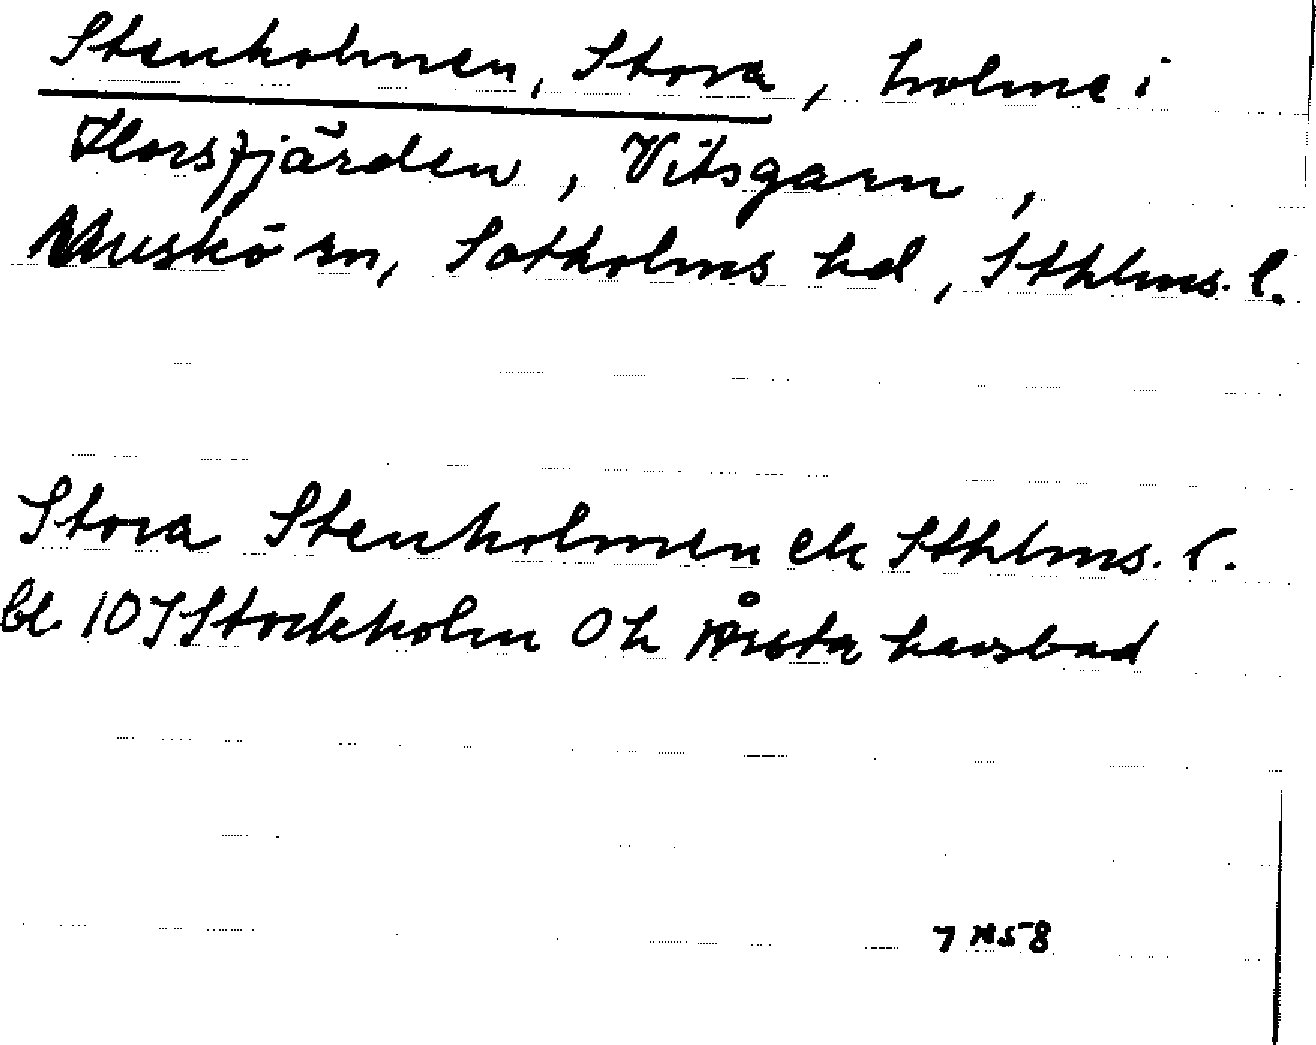 Stenholmen, Stora, holme i
Horsfjärden, Vitsgarn,
Muskö sn, Sotholms hd, Sthlms. l.
Stora Stenholmen ek Sthlms. l.
bl. 10I Stockholm Oh Årsta havsbad